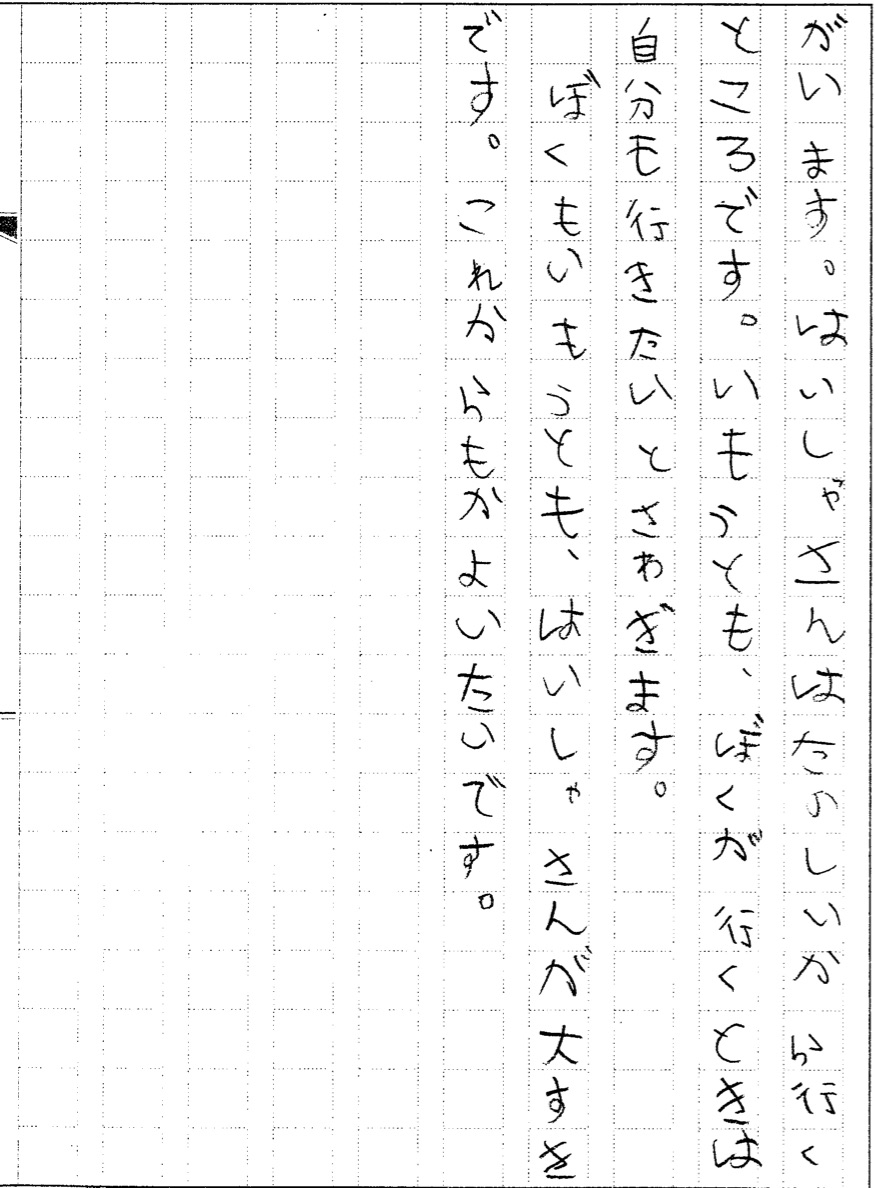 がいます。はいしゃさんはたのしいから行く
ところです。いもうとも、ぼくが行くときは
自分も行きたいとさわぎます。
ぼくもいもうとも、はいしゃさんが大すき
です。これからもかよいたいです。